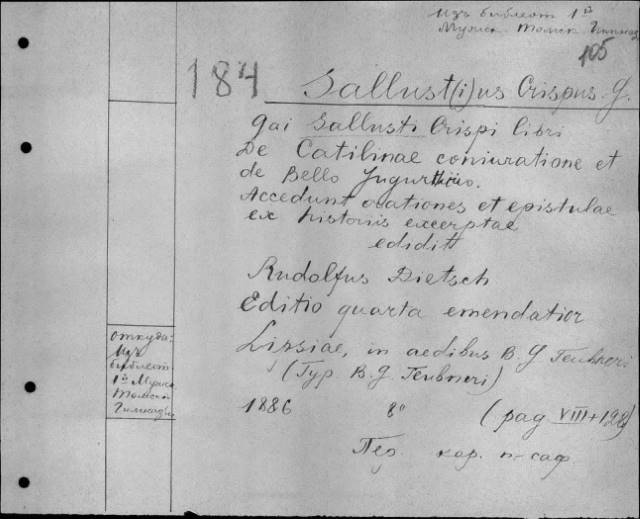 Изъ библiот 1ой
Мужск. Томск Гимназ
105
184 Sallust(i)us Crispus. G.
Gai Sallusti Crispi libri
De Catilinae coniuratione et
de Bello Jugurthino.
Accedunt orationes et epistulae
ex historiis excerptae
edidit
Rudolfus Dietsch
Editio quarta emendatior
Lipsiae, in aedibus B. G Teubneri
(Typ B. G Teubneri)
1886 8° (pag VIII+128)
Пер. кор. п-саф
откуда:
Изъ
библiот
1ой Мужск
Томской
Гимназiи